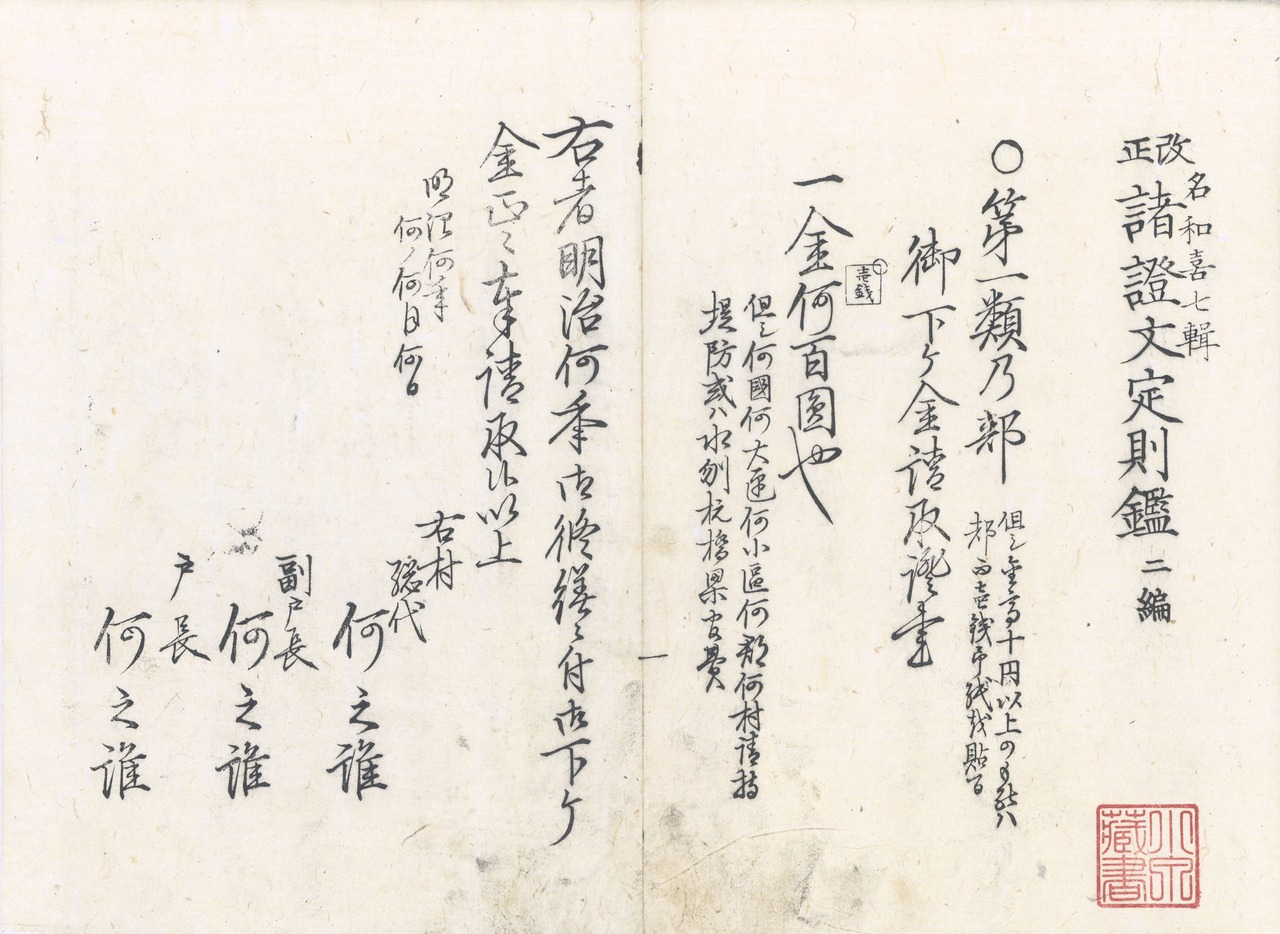 改正 諸證文定則鑑 二編
名和喜七輯
○第一類乃部
但シ金高十円以上のものハ
都而壱銭印紙越貼百
御下ケ金請取證書
壱銭
一金何百圓也
但シ何國何大區何小區何郡何村請持
堤防或ハ水刎杭橋梁官費
右者明治何季御修繕ニ付御下ケ
金正ニ奉請取候以上
明治何年
何ノ何月何日
右村
總代
何之誰
副戸長
何之誰
戸長
何之誰
小宗藏書